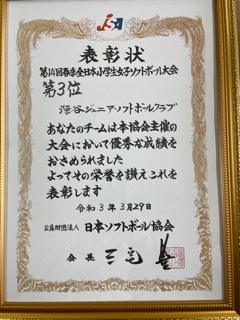 JSA
表彰状
第14回春季全日本小学生女子ソフトボール大会
第3位
澄谷ジュニアソフトボールクラブ
あなたのチームは本協会主催の
大会において優秀な成績を
おさめられました
よってその栄誉を讃えこれを
表彰します
令和3年3月29日
公益財団法人 日本ソフトボール協会
会長 三宅 豊